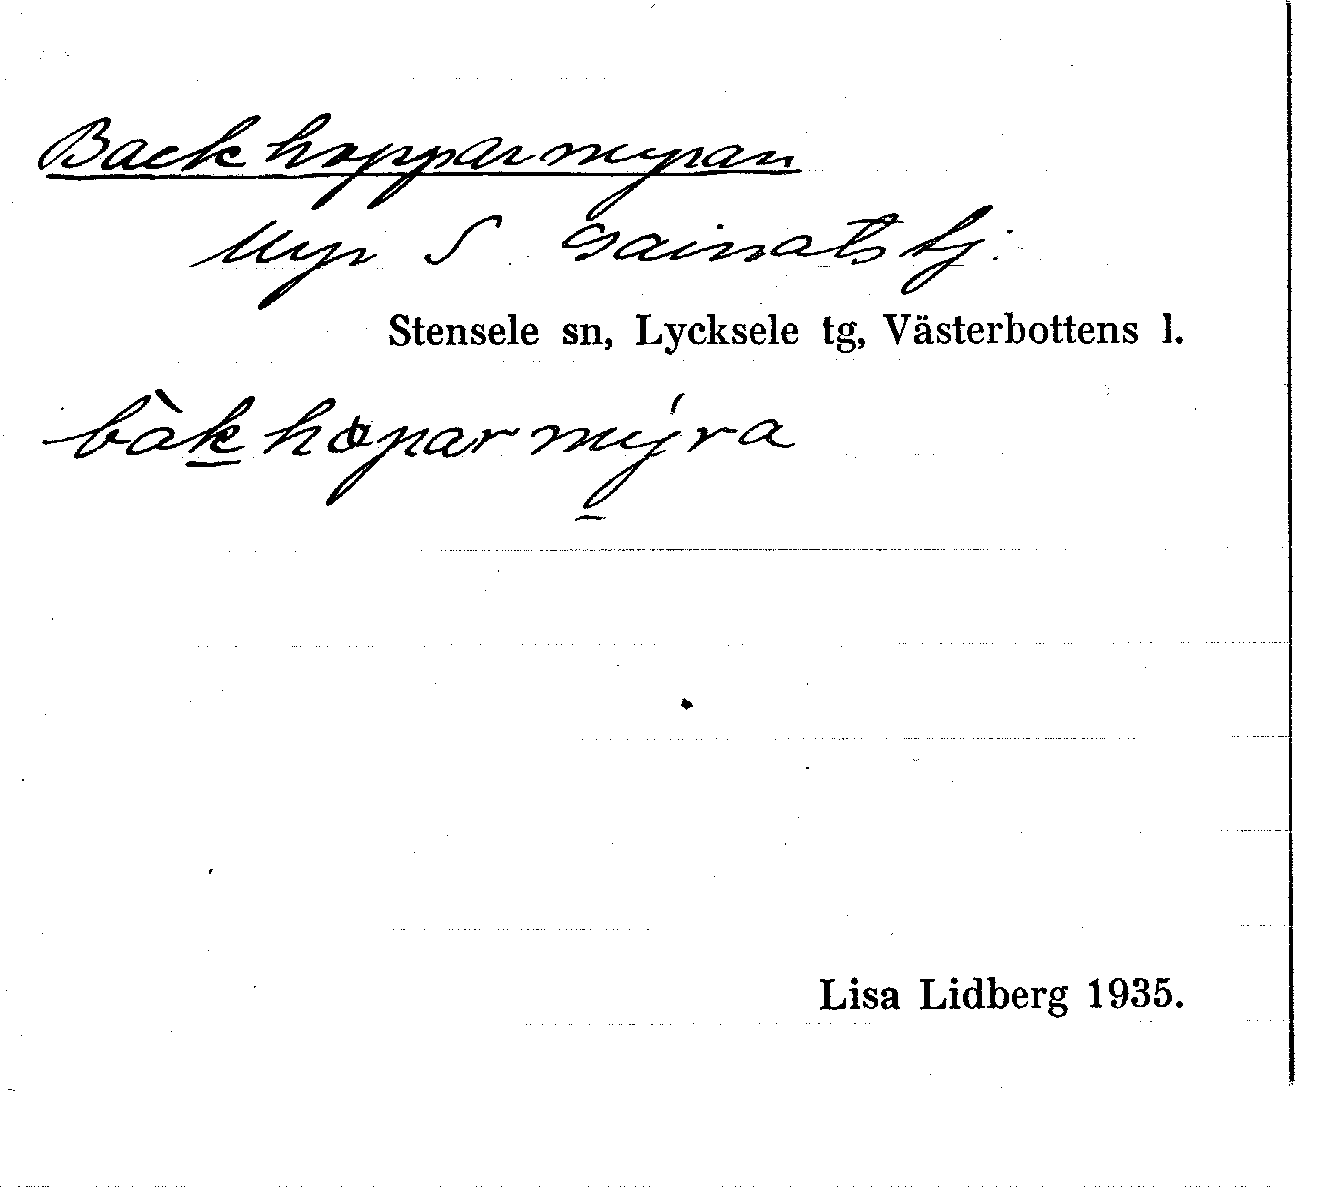 Backhopparmyran
Myr S Gaissatstj.
Stensele sn, Lycksele tg, Västerbottens l.
bàkhoparmýra
Lisa Lidberg 1935.